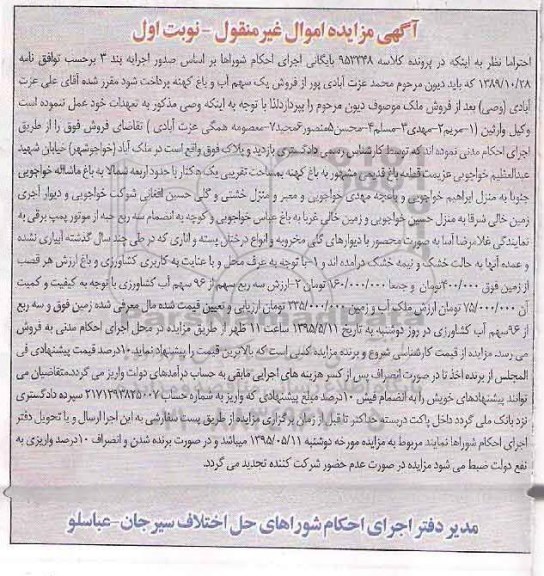 آگهی مزایده اموال غیرمنقول - نوبت اول
احتراما نظر به اینکه در پرونده کلاسه ۹۵۳۲۴۸ بایگانی اجرای احکام شوراها بر اساس صدور اجرایه بند ۳ برحسب توافق نامه
۱۳۸۹/۱۰/۲۸ که باید دیون مرحوم محمد عزت آبادی پور از فروش یک سهم آب و باغ کهنه پرداخت شود مقرر شده آقای علی عزت
آبادی (وصی) بعد از فروش ملک موصوف دیون مرحوم را بپردازد لذا با توجه به اینکه وصی مذکور به تعهدات خود عمل ننموده است
وکیل وارثین (۱-مریم۲-مهدی۳-مسلم۴-محسن۵منصور۶مجید۷-معصومه همگی عزت آبادی ) تقاضای فروش فوق را از طریق
اجرای احکام مدنی نموده اند که توسط کارشناس رسمی دادگستری بازدید و پلاک فوق واقع است در ملک آباد (خواجوشهر) خیابان شهید
عبدالعظیم خواجویی عزیمت قطعه باغ قدیمی مشهور به باغ کهنه بمساحت تقریبی یک هکتار با حدود اربعه شمالا به باغ ماشااله خواجویی
جنوبا به منزل ابراهیم خواجویی و باغچه مهدی خواجویی و معبر و منزل خشتی و گلی حسین افغانی شوکت خواجویی و دیوار آجری
زمین خالی شرقا به منزل حسین خواجویی و زمین خالی غربا به باغ عباس خواجویی و کوچه به انضمام سه ربع حبه از موتور پمپ برقی به
نمایندگی غلامرضا آسا به صورت محصور با دیوارهای گلی مخروبه و انواع درختان پسته و اناری که در طی چند سال گذشته آبیاری نشده
و عمده آنها به حالت خشک و نیمه خشک درآمده اند و ۱-با توجه به عرف محل و با عنایت به کاربری کشاورزی و باغ ارزش هر قصب
از زمین فوق ۴۰۰/۰۰۰تومان و جمعا ۱۶۰/۰۰۰/۰۰۰ تومان ۲-ارزش سه ربع سهم از ۹۶ سهم آب کشاورزی با توجه به کیفیت و کمیت
آن ۷۵/۰۰۰/۰۰۰ تومان ارزش ملک آب و زمین ۲۳۵/۰۰۰/۰۰۰ تومان ارزیابی و تعیین قیمت شده مال معرفی شده زمین فوق و سه ربع
از ۹۶سهم آب کشاورزی در روز دوشنبه به تاریخ ۱۳۹۵/۵/۱۱ ساعت ۱۱ ظهر از طریق مزایده در محل اجرای احکام مدنی به فروش
می رسد. مزایده از قیمت کارشناسی شروع و برنده مزایده کسی است که بالاترین قیمت را پیشنهاد نماید.۱۰درصد قیمت پیشنهادی فی
المجلس از برنده اخذ تا در صورت انصراف پس از کسر هزینه های اجرایی مابقی به حساب درآمدهای دولت واریز می گردد.متقاضیان می
توانند پیشنهادهای خویش را به انضمام فیش ۱۰درصد مبلغ پیشنهادی که واریز به شماره حساب ۲۱۷۱۲۹۳۸۲۵۰۰۷ سپرده دادگستری
نزد بانک ملی گردد داخل پاکت دربسته حداکثر تا قبل از زمان برگزاری مزایده از طریق پست سفارشی به این اجرا ارسال و یا تحویل دفتر
اجرای احکام شوراها نمایند مربوط به مزایده مورخه دوشنبه ۱۳۹۵/۰۵/۱۱ میباشد و در صورت برنده شدن و انصراف ۱۰درصد واریزی به
نفع دولت ضبط می شود مزایده در صورت عدم حضور شرکت کننده تجدید می گردد.
مدیر دفتر اجرای احکام شوراهای حل اختلاف سیرجان-عباسلو